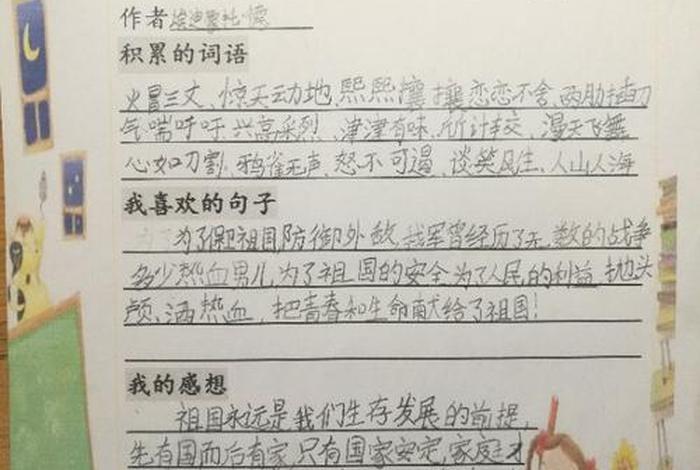 作者埃迪蒙托·德
积累的词语
火冒三丈、惊天动地、熙熙攘攘恋恋不舍、两肋插刀
气喘吁吁、兴高采烈、津津有味、斤斤计较、漫天飞舞
心如刀割、鸦雀无声、怒不可遏、谈笑风生、人山人海
我喜欢的句子
为了保卫祖国防御外敌,我军曾经历了无数的战争
多少热血男儿,为了祖国的安全为了人民的利益抛头
颅、洒热血,把青春和生命献给了祖国!
我的感想
祖国永远是我们生存发展的前提,
先有国而后有家,只有国家安定,家庭才